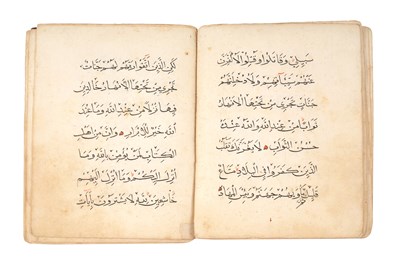 سبيلي وقاتلوا وقتلوا لأكفرن
عنهم سيئاتهم ولأدخلنهم
جنات تجري من تحتها الأنهار
ثوابا من عند الله والله عنده
حسن الثواب لا يغرنك تقلب
الذين كفروا في البلاد متاع
قليل ثم مأويهم جهنم وبئس المهاد
لكن الذين اتقوا ربهم لهم جنات
تجري من تحتها الأنهار خالدين
فيها نزلا من عند الله وما عند
الله خير للأبرار وإن من أهل
الكتاب لمن يؤمن بالله وما
أنزل إليكم وما أنزل إليهم
خاشعين لله لا يشترون بآيات